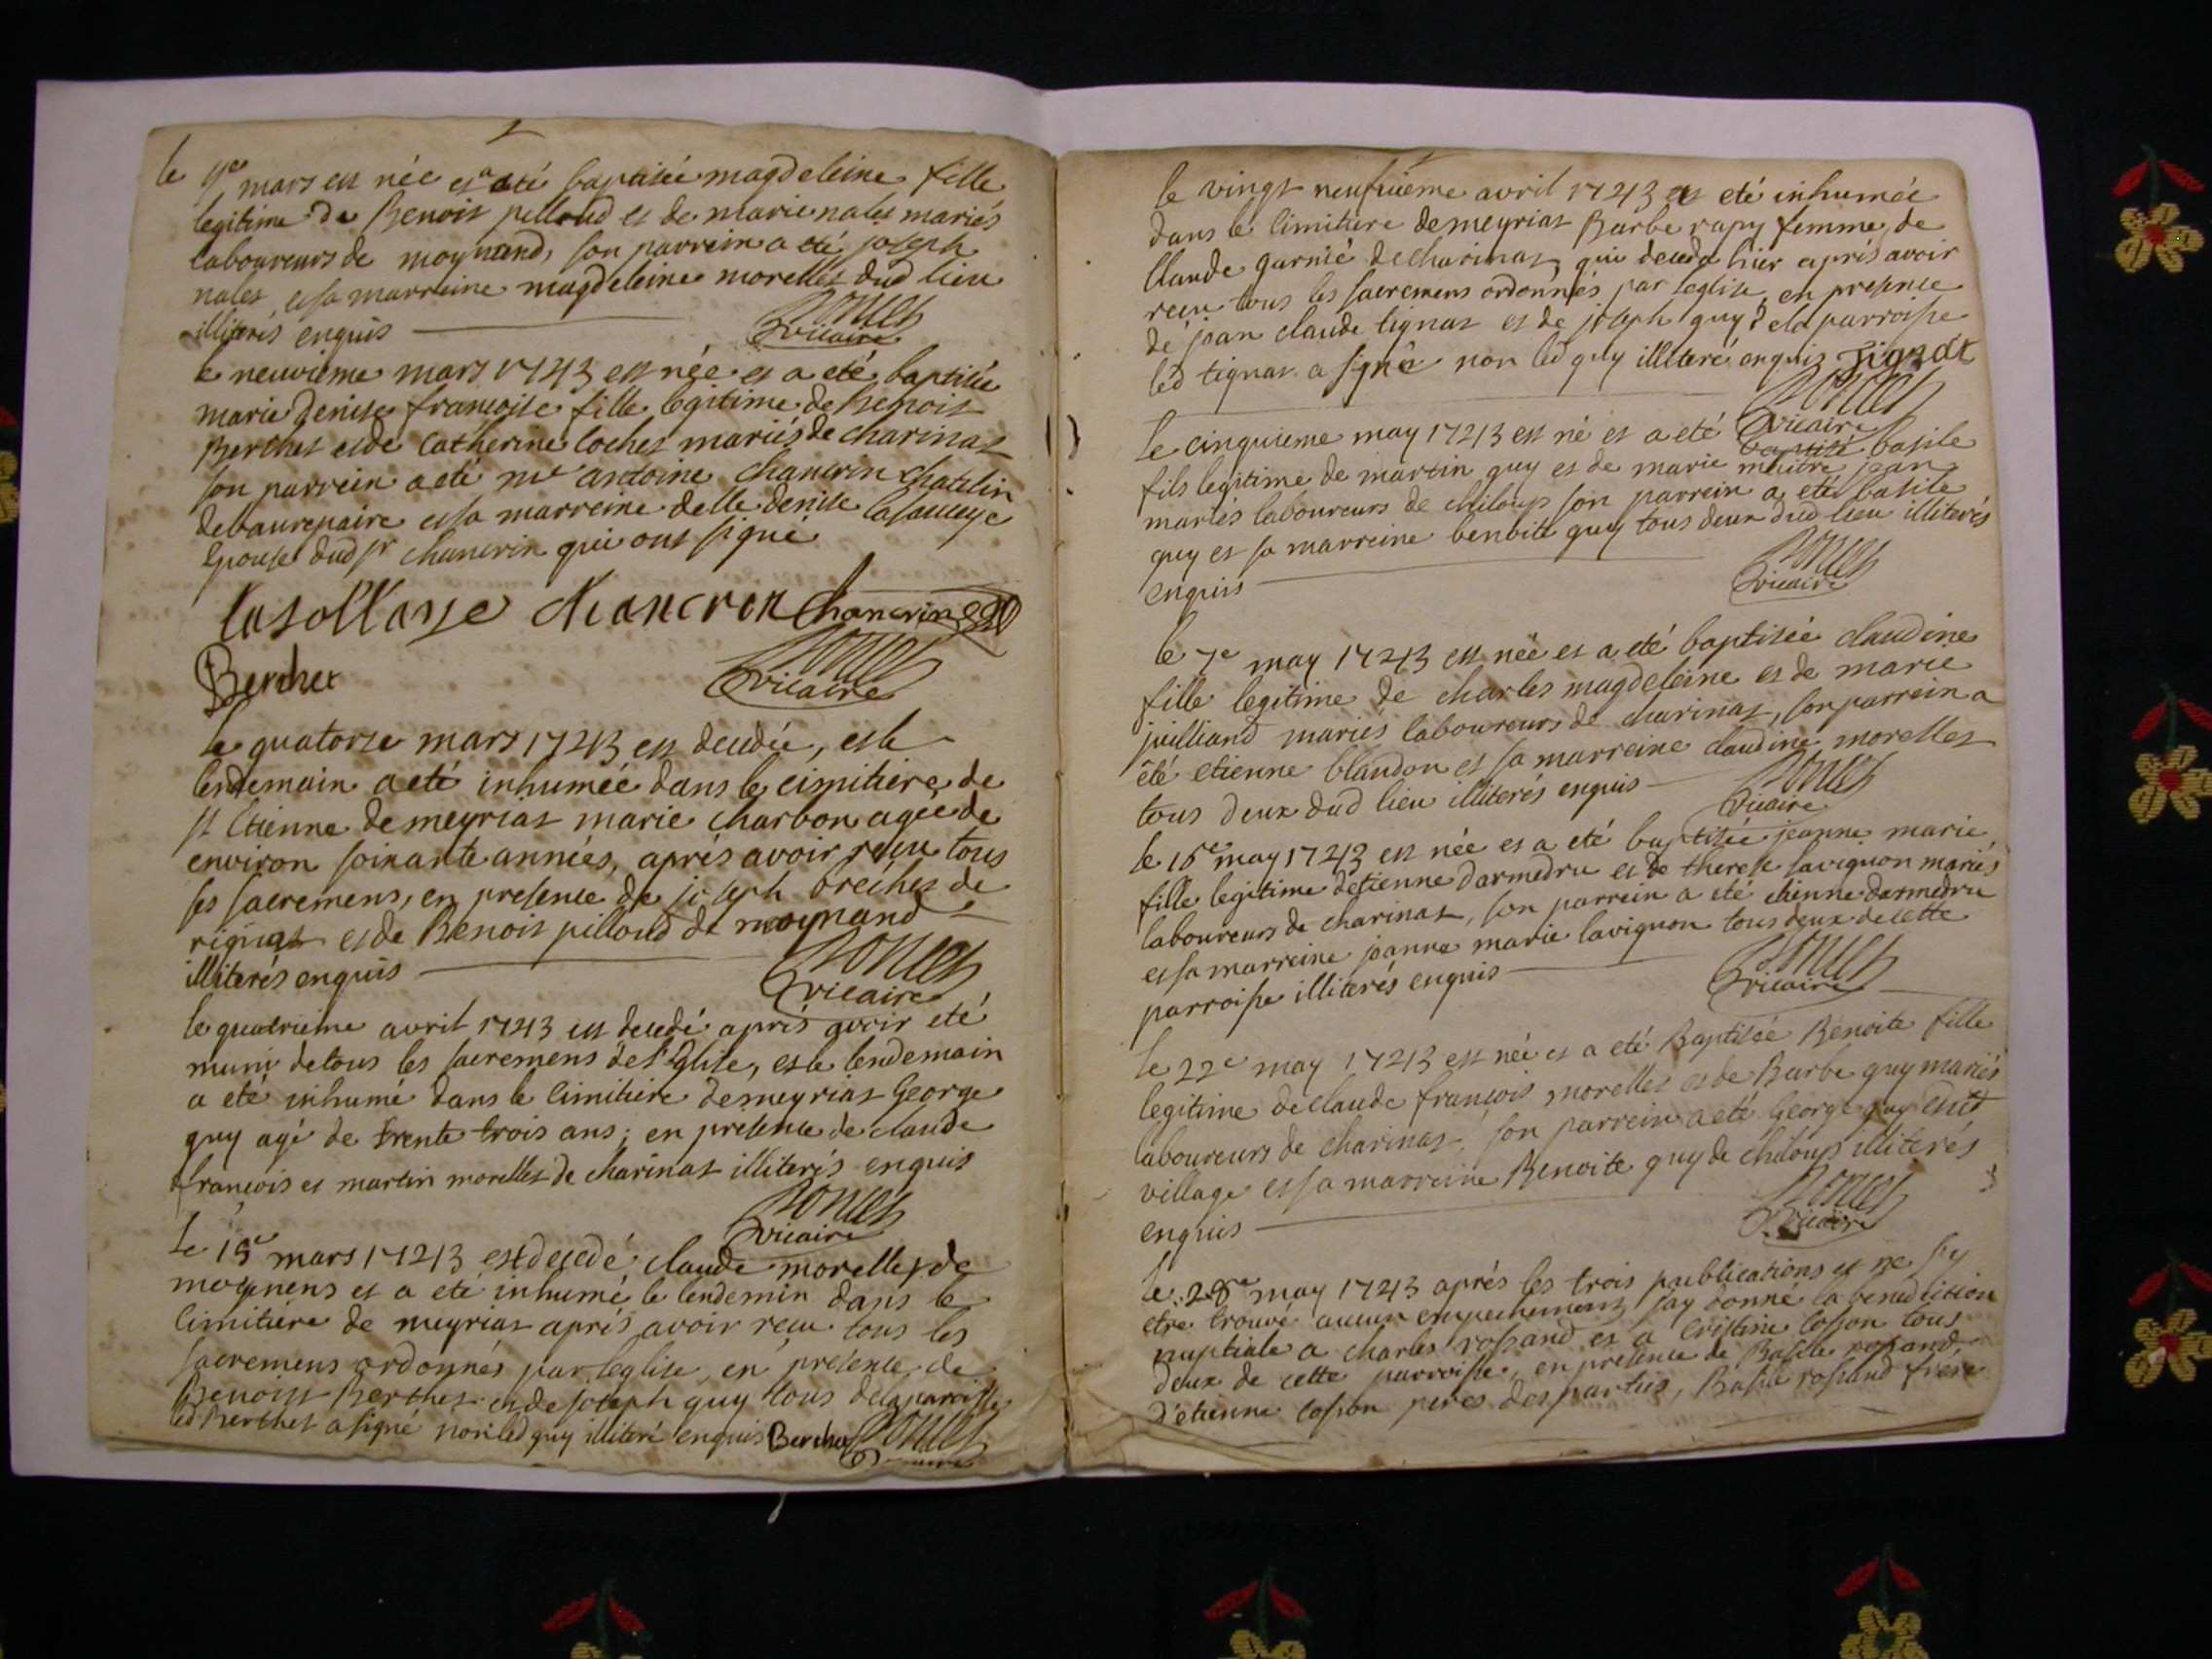 le 4e mars est née et a eté baptisée magdeleine fille
legitime de Benoit pilloud et de marie nalet mariés
laboureurs de moynand, son parrein a eté joseph
nalet, et sa marreine magdeleine morellet dud lieu
illiterés enquis
vicaire
le neuvième mars 1743 est née et a eté baptisée
marie denise françoise fille legitime de Benoit
Berthet et de Catherine Cochet mariés de charinat
son parrein a eté mr antoine chancrin chatelin
de baurepaire et sa marreine delle denise
epouse dud sr chancrin qui ont signé
chancron Chancrin
Berthet
vicaire
le quatorze mars 1743 est decedée, et le
lendemain a eté inhumée dans le cimitière de
st Etienne de meyriat marie charbon agée de
environ soixante années, aprés avoir reçu tous
ses sacremens, en presence de joseph brechet de
rignat et de Benoit pilloud de moynand
illiterés enquis
vicaire
le quatrième avril 1743 est decedé aprés avoir eté
muni de tous les sacremens de l'Eglise, et le lendemain
a eté inhumé dans le cimitière de meyriat George
guy agé de trente trois ans; en presence de claude
françois et martin morellet de charinat illiterés enquis
vicaire
le 15e mars 1743 est decedé claude morellet de
moynens et a eté inhumé le lendemin dans le
cimitière de meyriat aprés avoir reçu tous les
sacremens ordonnés par l'eglise, en presence de
Benoist Berthet et de joseph guy tous de la paroisse
led Berthet a signé non led guy illiteré enquis Berthet
le vingt neufvieme avril 1743 a eté inhumée
dans le cimitiere de meyriat Barbe rapy femme de
Claude garnié de charinat, qui deceda hier aprés avoir
reçu tous les sacremens ordonnés par l'eglise, en presence
de jean claude tignat et de joseph guy de la parroisse
led tignat a signé non led guy illiteré enquis Tignat
vicaire
Le cinquieme may 1743 est né et a eté baptisé basile
fils legitime de martin guy et de marie maitre jean
mariés laboureurs de chiloup son parrein a eté basile
guy et sa marreine benoite guy tous deux dud lieu illiterés
enquis
vicaire
le 7e may 1743 est née et a eté baptisée claudine
fille legitime de charles magdeleine et de marie
juilliand mariés laboureurs de charinat, son parrein a
été etienne blandon et sa marreine claudine morellet
tous deux dud lieu illiterés enquis
vicaire
le 16e may 1743 est née et a eté baptisée jeanne marie
fille legitime d'etienne darmedru et de therese savignon mariés
laboureurs de charinat, son parrein a eté etienne darmedru
et sa marreine jeanne marie savignon tous deux de cette
parroisse illiterés enquis
vicaire
le 22e may 1743 est née et a eté Baptisée Benoite fille
legitime de claude françois morellet et de Barbe guy mariés
laboureurs de charinat, son parrein a eté George guy dud
village et sa marreine Benoite guy de chiloup illiterés
enquis
vicaire
le 28e may 1743 aprés les trois publications et ne s'y
etre trouvé aucun empechement j'ay donné la benediction
nuptiale a charles rossand et a Cristine cosson tous
deux de cette parroisse, en presence de Basile rossand
d'etienne cosson peres des parties, Basile rossand frere